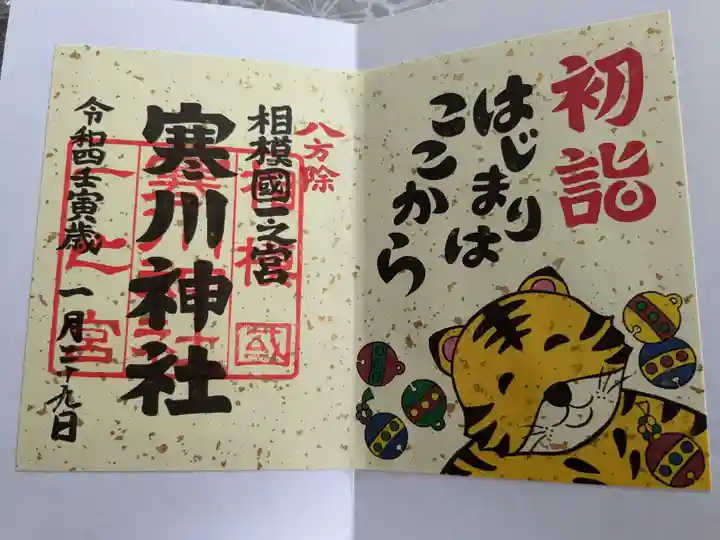 初詣
はじまりは
ここから
八方除
相模國一之宮
寒川神社
令和四壬寅歳 一月二十九日